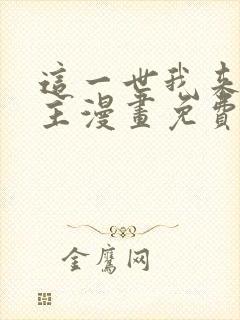 這一世我來
主漫畫免費
金鷹网